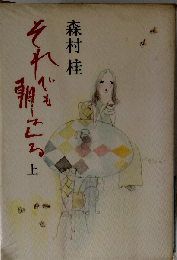 森村桂
それでも
朝はくる
上